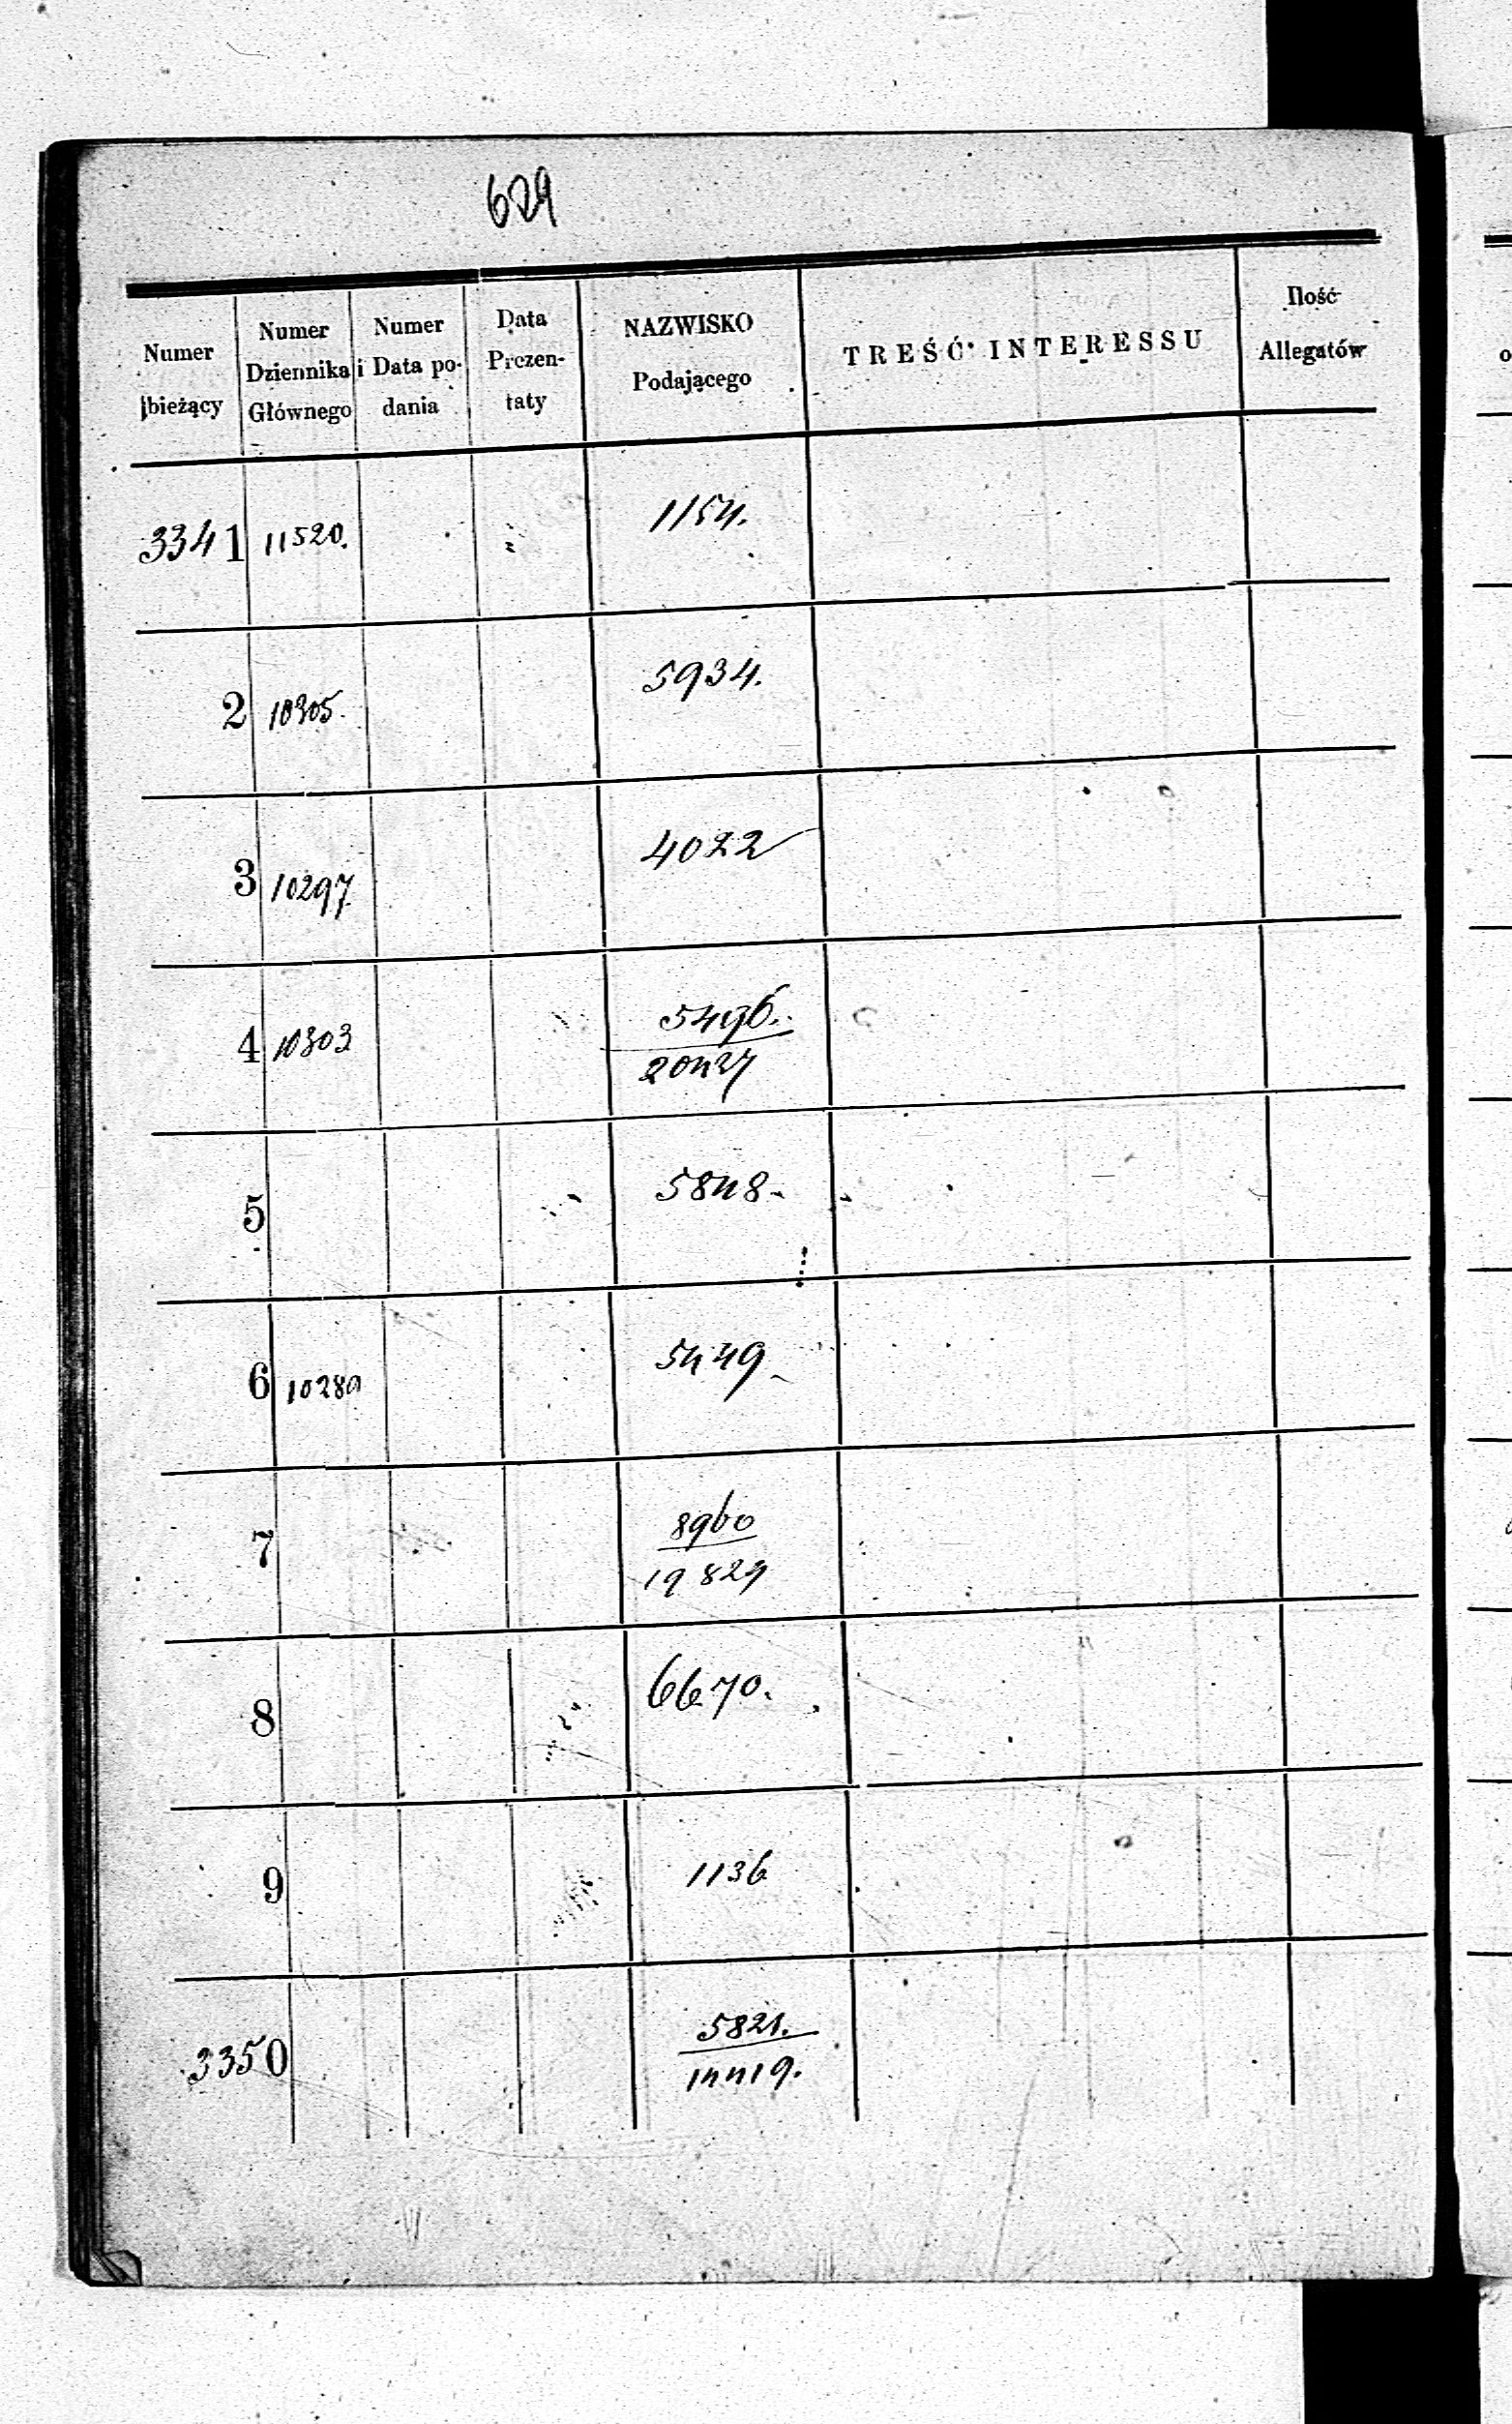 629
Numer bieżący
Numer Dziennika Głównego
Numer i Data po- dania
Data Prezen- taty
NAZWISKO Podającego
TREŚĆ INTERESSU
Ilość Allegatów
3341 11520. 1154.
2 10305. 5934.
3 10297 4022
4 10303 5496.
20427
5 5848.
6 10289 5449
7 8960
19829
8 6670.
9 1136
3350 5821.
14419.